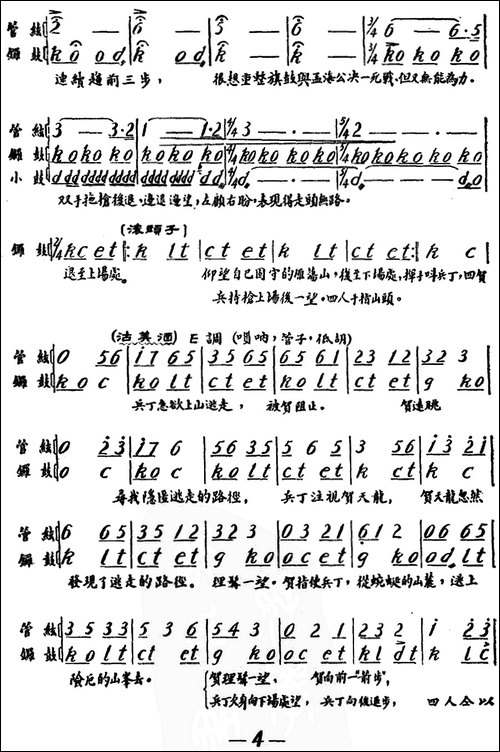 管絃 2 — 6 — 3 — 6 — 3/4 6 — 6·5
鑼鼓 k o o d. k o d. k — k — ko ko ko
連續趨前三步，很想重整旗鼓與孟海公决一死戰，但又無能為力。
管絃 3 — 3·2 1 — 1·2 4/4 3 — · — · 5/4 2 — · — — ·
鑼鼓 ko ko ko ko ko ko 4/4 ko ko ko ko 5/4 ko ko ko ko ko
小鼓 dd dddd dddd dddd dddd dd. 4/4 d. — · — · 5/4 d. — · — — d.o
双手拖槍後退，邊退邊望，左顧右盼，表現得走頭無路。
(滚頭子)
鑼鼓 2/4 kc et :k lt ct et k lt ct et: k c
退至上場處。仰望自己困守的雁蕩山，後至下場處，揮手叫兵丁，四賀
兵持槍上場後一望，四人手指山頭。
(法美酒) E調 (嗩吶，管子，低胡)
管絃 0 56 i7 65 35 65 65 61 23 12 32 3
鑼鼓 ko c ko lt ct et ko lt ct et g ko
兵丁急欲上山逃走，被賀阻止。賀遠眺
管絃 0 23 i7 6 56 35 5 65 3 56 i3 2i
鑼鼓 0 c ko c ko lt ct et k ct k c
尋找隱匿逃走的路徑，兵丁注視賀天龍，賀天龍忽然
管絃 6 65 35 12 32 3 03 21 61 2 06 65
鑼鼓 k lt ct et g ko oc et g ko od. lt
發現了逃走的路徑。理髯一望。賀指使兵丁，從蜿蜒的山麓，逃上
管絃 35 33 5 36 54 3 0 21 23 2 i 23
鑼鼓 ko lt ct et g ko oc et kl dt k lc
險厄的山峯去。賀理髯一望，賀向前一"箭步"，
兵丁欠身向下場處望，兵丁向後退步，四人仝以
— 4 —